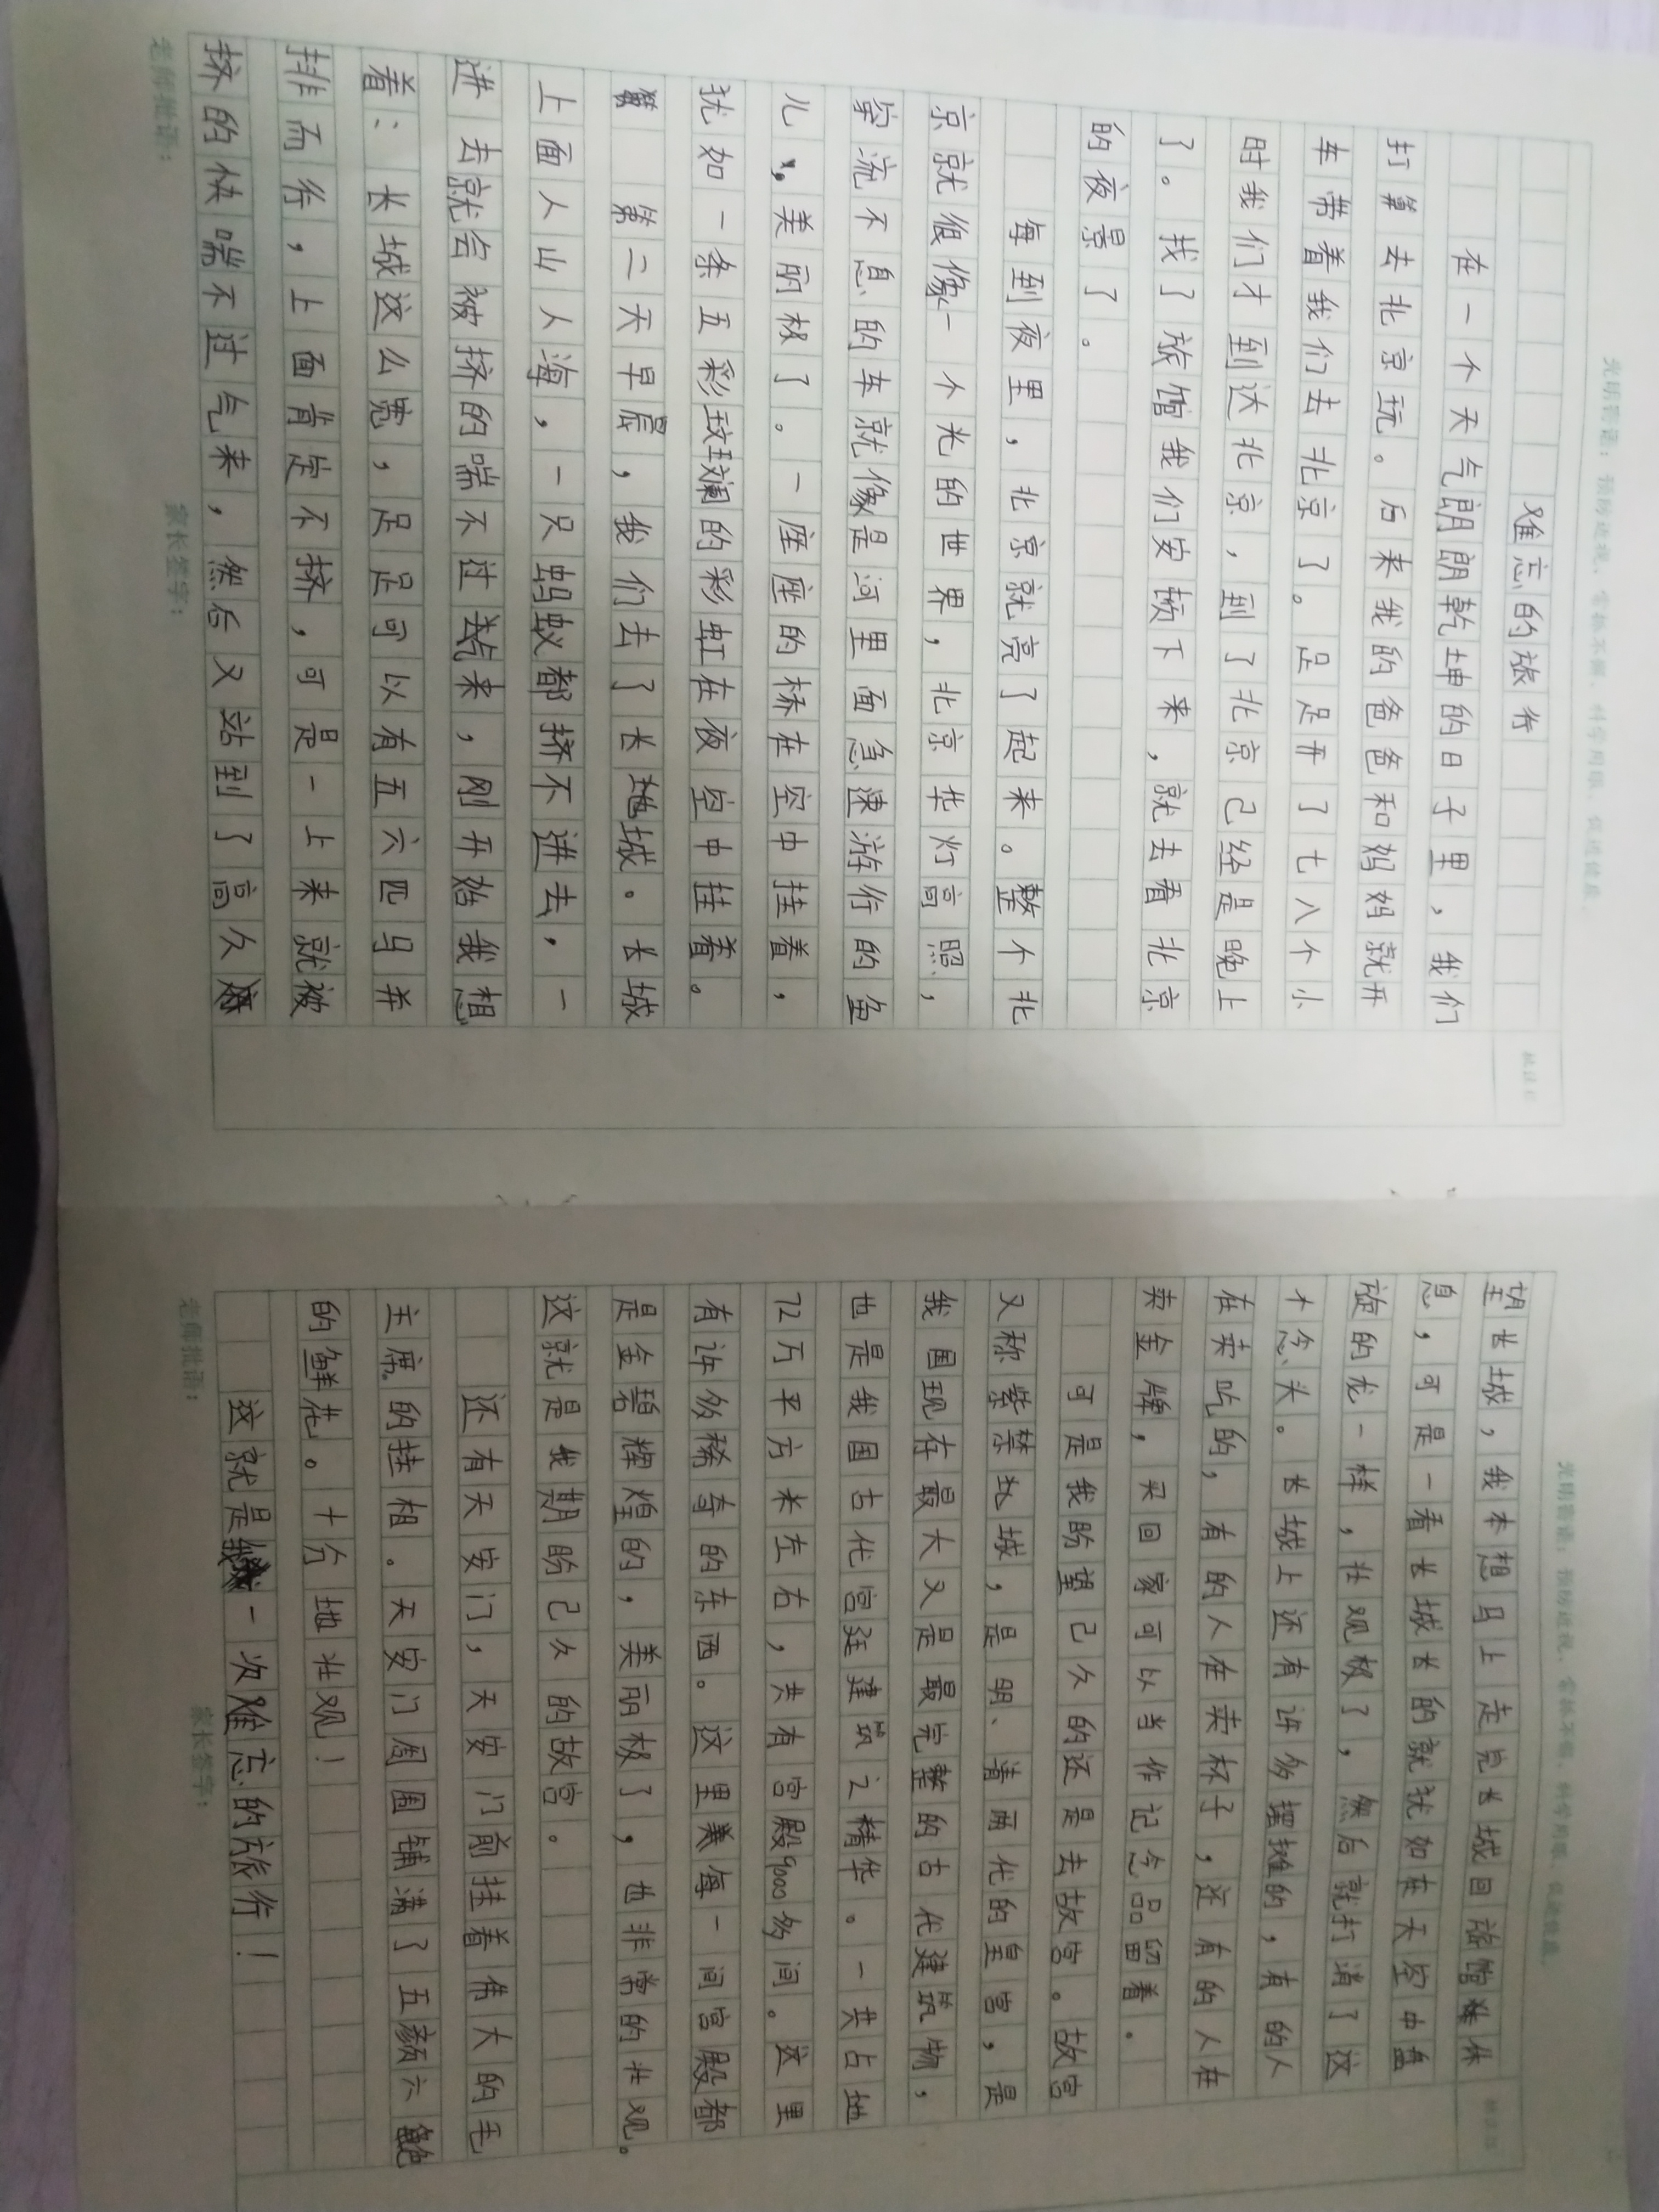 光明寄语：预防近视，常抓不懈，科学用眼，促进健康。
难忘的旅行
批注栏
在一个天气朗朗乾坤的日子里，我们
打算去北京玩。后来我的爸爸和妈妈就开
车带着我们去北京了。足足开了七八个小
时我们才到达北京，到了北京已经是晚上
了。找了旅馆我们安顿下来，就去看北京
的夜景了。
每到夜里，北京就亮了起来。整个北
京就很像一个光的世界，北京华灯高照，
穿流不息的车就像是河里面急速游行的鱼
儿，美丽极了。一座座的桥在空中挂着，
犹如一条五彩玟斓的彩虹在夜空中挂着。
第二天早晨，我们去了长城。长城
上面人山人海，一只蚂蚁都挤不进去，一
进去就会被挤的喘不过气来，刚开始我想
着：长城这么宽，足足可以有五六匹马并
排而行，上面肯定不挤，可是一上来就被
挤的快喘不过气来，然后又站到了高久
老师批语：
家长签字：
光明寄语：预防近视，常抓不懈，科学用眼，促进健康。
批注栏
望长城，我本想马上走完长城回旅馆休
息，可是一看长城长的就犹如在天空中盘
旋的龙一样，壮观极了，然后就打消了这
个念头。长城上还有许多摆摊的，有的人
在卖吃的，有的人在卖杯子，还有的人在
卖金牌，买回家可以当作记念品留着。
可是我盼望已久的还是去故宫。故宫
又称紫禁城，是明、清两代的皇宫，是
我国现存最大又是最完整的古代建筑物，
也是我国古代宫廷建筑之精华。一共占地
72万平方米左右，共有宫殿9000多间。这里
有许多稀奇的东西。这里每一间宫殿都
是金碧辉煌的，美丽极了，也非常的壮观。
这就是我期盼已久的故宫。
还有天安门，天安门前挂着伟大的毛
主席的挂相。天安门周围铺满了五颜六色
的鲜花。十分地壮观！
这就是一次难忘的旅行！
老师批语：
家长签字：